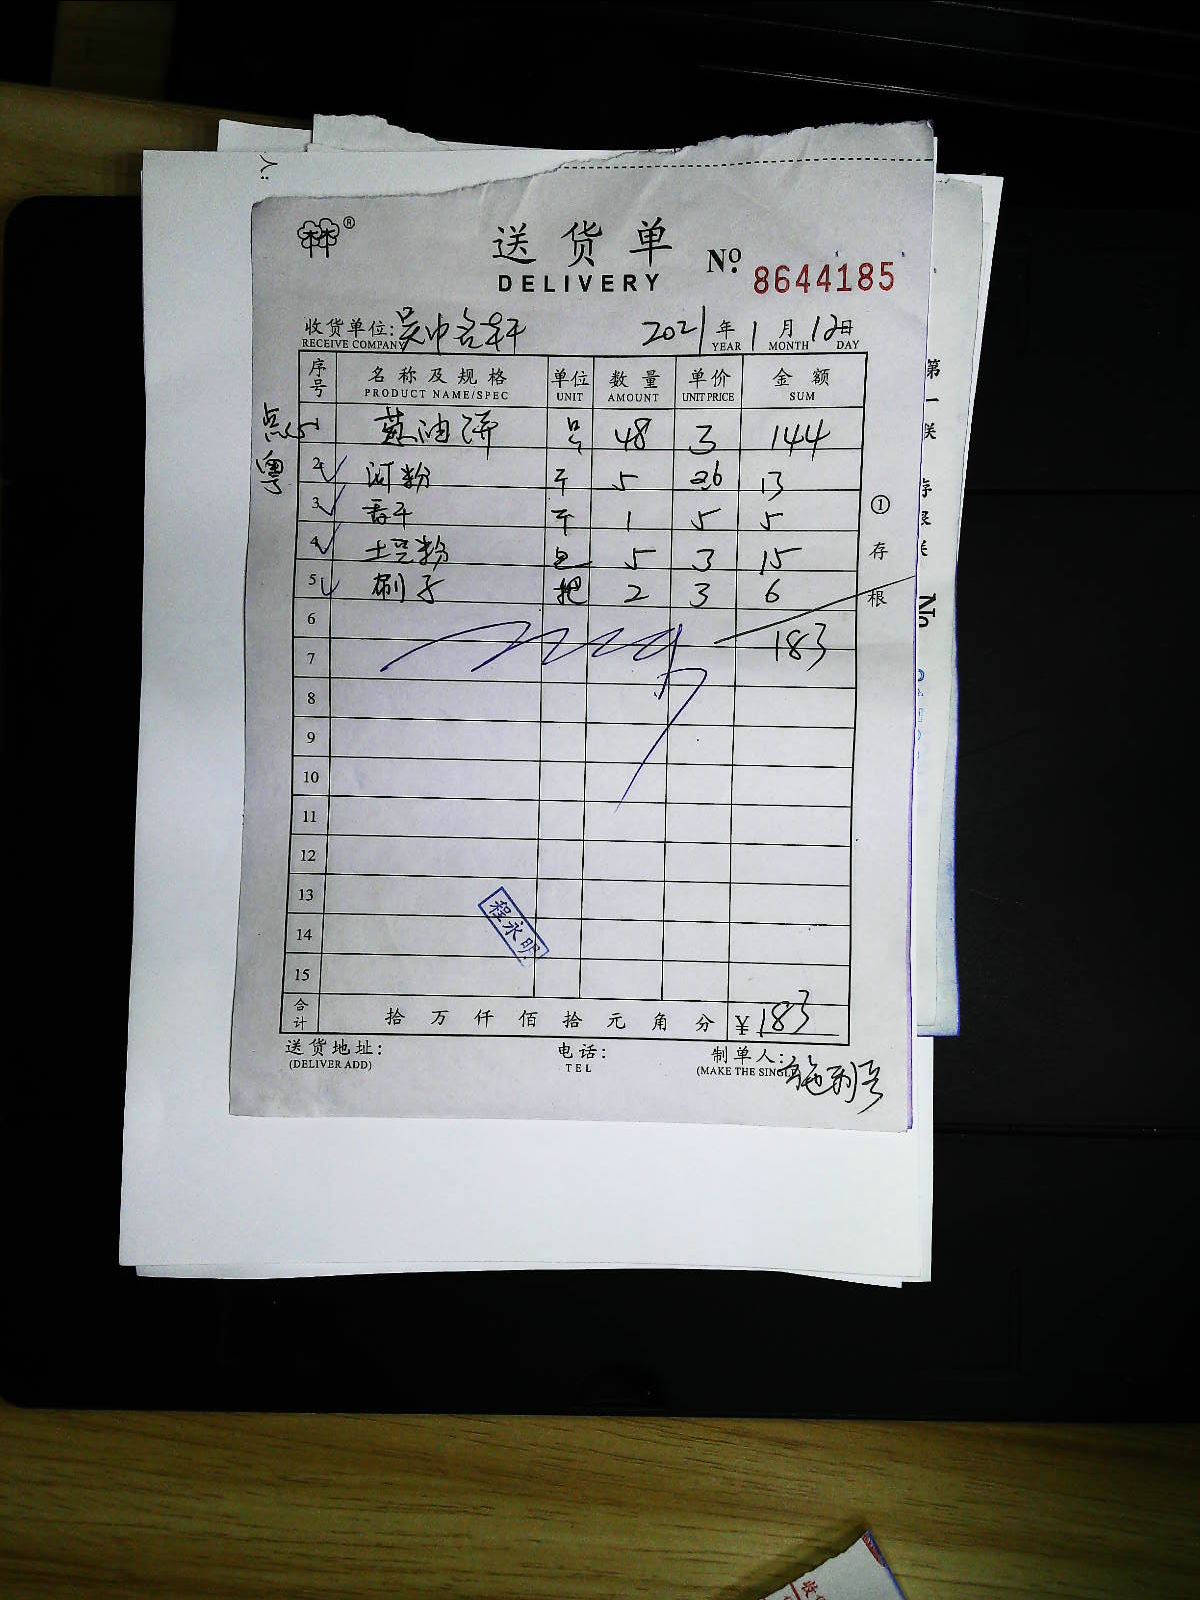 送货单
DELIVERY
№ 8644185
收货单位: 吴中名轩 2021年1月12日
RECEIVE COMPANY YEAR MONTH DAY
序号 名称及规格 单位 数量 单价 金额
PRODUCT NAME/SPEC UNIT AMOUNT UNIT PRICE SUM
点心 1 葱油饼 48 3 144
粤 2 河粉 斤 5 2.6 13
3 香干 斤 1 5 5
4 土豆粉 包 5 3 15
5 刷子 把 2 3 6
6
183
7
8
9
10
11
12
13
程永明
14
15
合计 拾 万 仟 佰 拾 元 角 分 ¥183
送货地址: 电话: 制单人:
(DELIVER ADD) TEL (MAKE THE SINGL
①存根
第一联
No